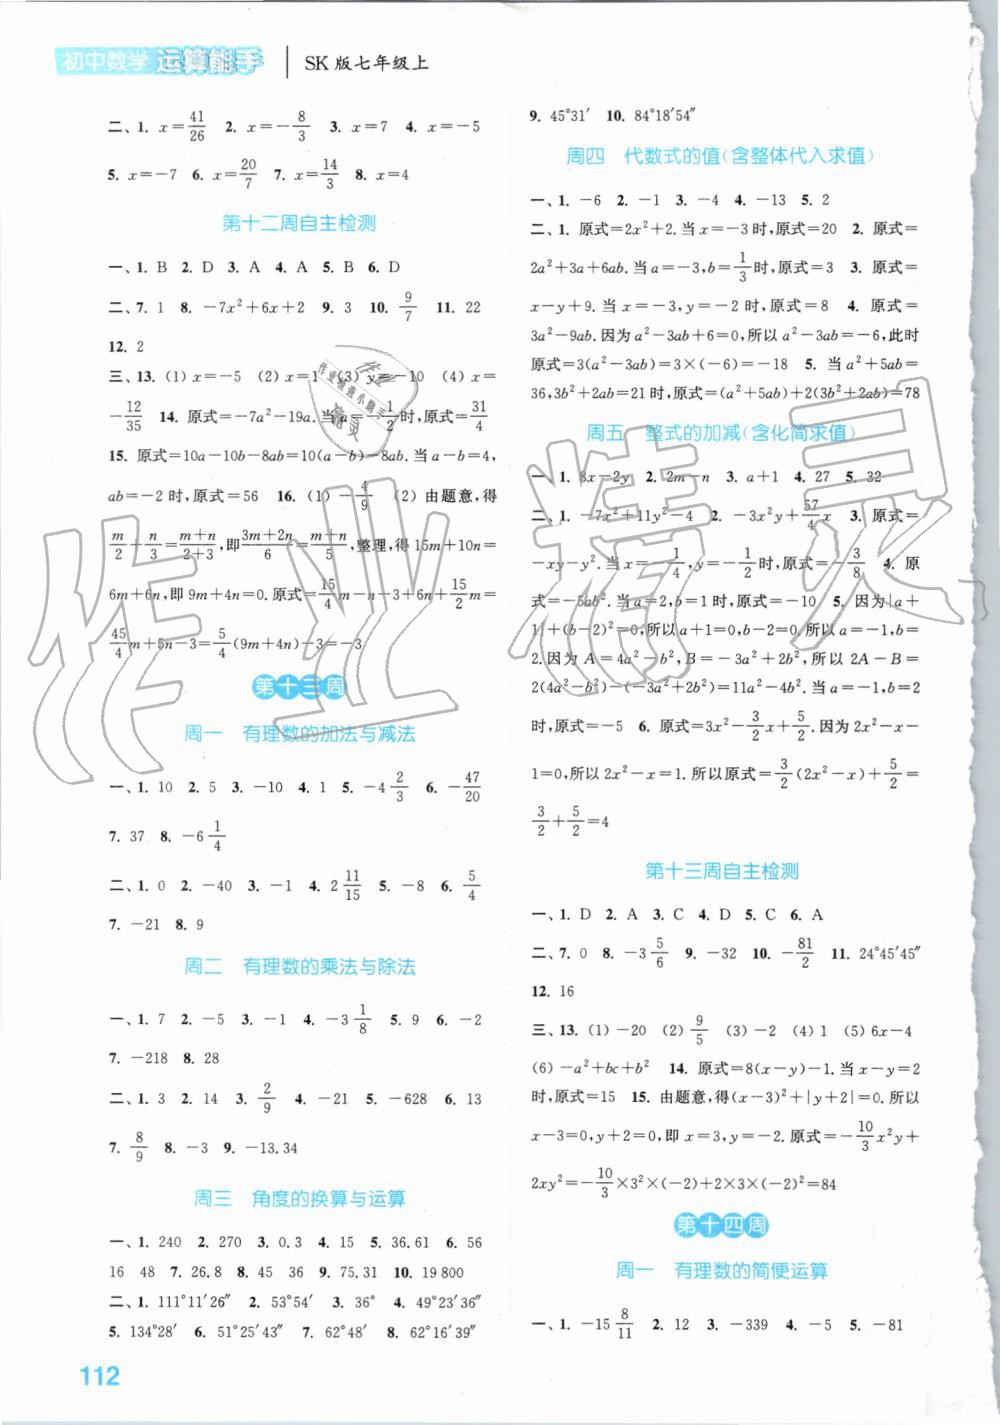 初中数学 运算能手 SK版七年级上
二、1. x=41/26 2. x=-8/3 3. x=7 4. x=-5
5. x=-7 6. x=20/7 7. x=14/3 8. x=4
第十二周自主检测
一、1. B 2. D 3. A 4. A 5. B 6. D
二、7. 1 8. -7x²+6x+2 9. 3 10. 9/7 11. 22
12. 2
三、13. (1) x=-5 (2) x=1 (3) y=-10 (4) x=
-12/35 14. 原式=-7a²-19a.当a=-1/2时,原式=31/4
15. 原式=10a-10b-8ab=10(a-b)-8ab.当a-b=4,
ab=-2时,原式=56 16. (1) -4/9 (2) 由题意,得
m/2+n/3=(m+n)/(2+3),即(3m+2n)/6=(m+n)/5,整理,得15m+10n=
6m+6n,即9m+4n=0.原式=15/4m-n-3+6n+15/2m=
45/4m+5n-3=5/4(9m+4n)-3=-3
第十三周
周一 有理数的加法与减法
一、1. 10 2. 5 3. -10 4. 1 5. -4 2/3 6. -47/20
7. 37 8. -6 1/4
二、1. 0 2. -40 3. -1 4. 2 11/15 5. -8 6. 5/4
7. -21 8. 9
周二 有理数的乘法与除法
一、1. 7 2. -5 3. -1 4. -3 1/8 5. 9 6. -2
7. -218 8. 28
二、1. 3 2. 14 3. 2/9 4. -21 5. -628 6. 13
7. 8/9 8. -3 9. -13.34
周三 角度的换算与运算
一、1. 240 2. 270 3. 0.3 4. 15 5. 36.61 6. 56
16 48 7. 26.8 8. 45 36 9. 75.31 10. 19 800
二、1. 111°11′26″ 2. 53°54′ 3. 36° 4. 49°23′36″
5. 134°28′ 6. 51°25′43″ 7. 102°48′ 8. 62°16′39″
112
9. 45°31′ 10. 84°18′54″
周四 代数式的值(含整体代入求值)
一、1. -6 2. -1 3. -4 4. -13 5. 2
二、1. 原式=2x²+2.当x=-3时,原式=20 2. 原式=
2a²+3a+6ab.当a=-3,b=1/3时,原式=3 3. 原式=
x-y+9.当x=-3,y=-2时,原式=8 4. 原式=
3a²-9ab.因为a²-3ab+6=0,所以a²-3ab=-6,此时
原式=3(a²-3ab)=3×(-6)=-18 5. 当a²+5ab=
36,3b²+2ab=21时,原式=(a²+5ab)+2(3b²+2ab)=78
周五 整式的加减(含化简求值)
一、1. 8x-2y 2. 2m-n 3. a+1 4. 27 5. 32
二、1. -7x²+11y²-4 2. -3x²y+57/4x 3. 原式=
-xy-y².当x=-1/4,y=-1/2时,原式=-3/8 4. 原
式=-5ab².当a=2,b=1时,原式=-10 5. 因为|a+
1|+(b-2)²=0,所以a+1=0,b-2=0.所以a=-1,b=
2.因为A=4a²-b²,B=-3a²+2b²,所以2A-B=
2(4a²-b²)-(-3a²+2b²)=11a²-4b².当a=-1,b=2
时,原式=-5 6. 原式=3x²-3/2x+5/2.因为2x²-x-
1=0,所以2x²-x=1.所以原式=3/2(2x²-x)+5/2=
3/2+5/2=4
第十三周自主检测
一、1. D 2. A 3. C 4. D 5. C 6. A
二、7. 0 8. -3 5/6 9. -32 10. -81/2 11. 24°45′45″
12. 16
三、13. (1) -20 (2) 9/5 (3) -2 (4) 1 (5) 6x-4
(6) -a²+bc+b² 14. 原式=8(x-y)-1.当x-y=2
时,原式=15 15. 由题意,得(x-3)²+|y+2|=0.所以
x-3=0,y+2=0,即x=3,y=-2.原式=-10/3x²y+
2xy²=-10/3×3²×(-2)+2×3×(-2)²=84
第十四周
周一 有理数的简便运算
一、1. -15 8/11 2. 12 3. -339 4. -5 5. -81
作业精灵
作业检查小助手
作业精灵